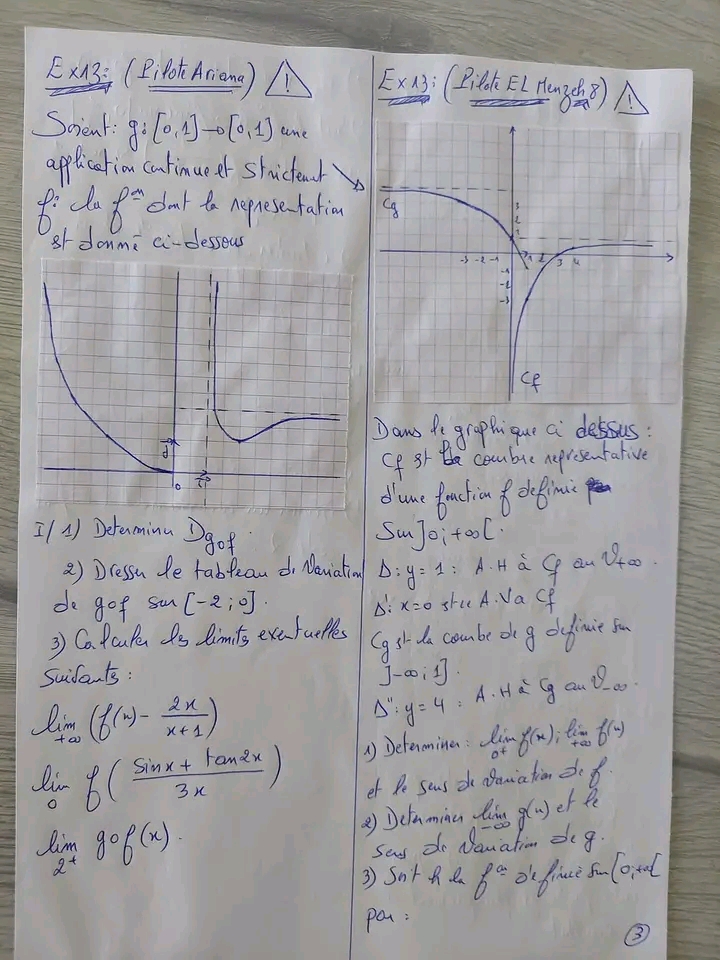 Ex13: (Pilote Ariana) !
Soient: g: [0,1] → [0,1] une
application continue et strictement ↘
f: la f^on dont la representation
est donné ci-dessous
j
0
i
I/ 1) Determiner D_gof
2) Dresser le tableau de Variation
de gof sur [-2;0].
3) Calculer les limites eventuelles
Suivantes:
lim_+∞ (f(x) - 2x/(x+1))
lim_0 f((Sinx + tan2x)/3x)
lim_2+ gof(x).
Ex13: (Pilote EL Menzeh 8) !
Cg
3
2
1
-3 -2 -1
1 2 3 4
-1
-2
-3
Cf
Dans le graphique ci dessus:
Cf est la courbe representative
d'une fonction f definie
Sur ]0;+∞[.
Δ: y = 1: A.H à Cf au V+∞.
Δ': x=0 est A.V à Cf
Cg est la courbe de g definie sur
]-∞;1].
Δ": y = 4: A.H à Cg au V-∞.
1) Determiner: lim_0+ f(x); lim_+∞ f(x)
et le sens de Variation de f.
2) Determiner lim_-∞ g(x) et le
sens de Variation de g.
3) Soit h la f^on définie sur [0;+∞[
par:
3